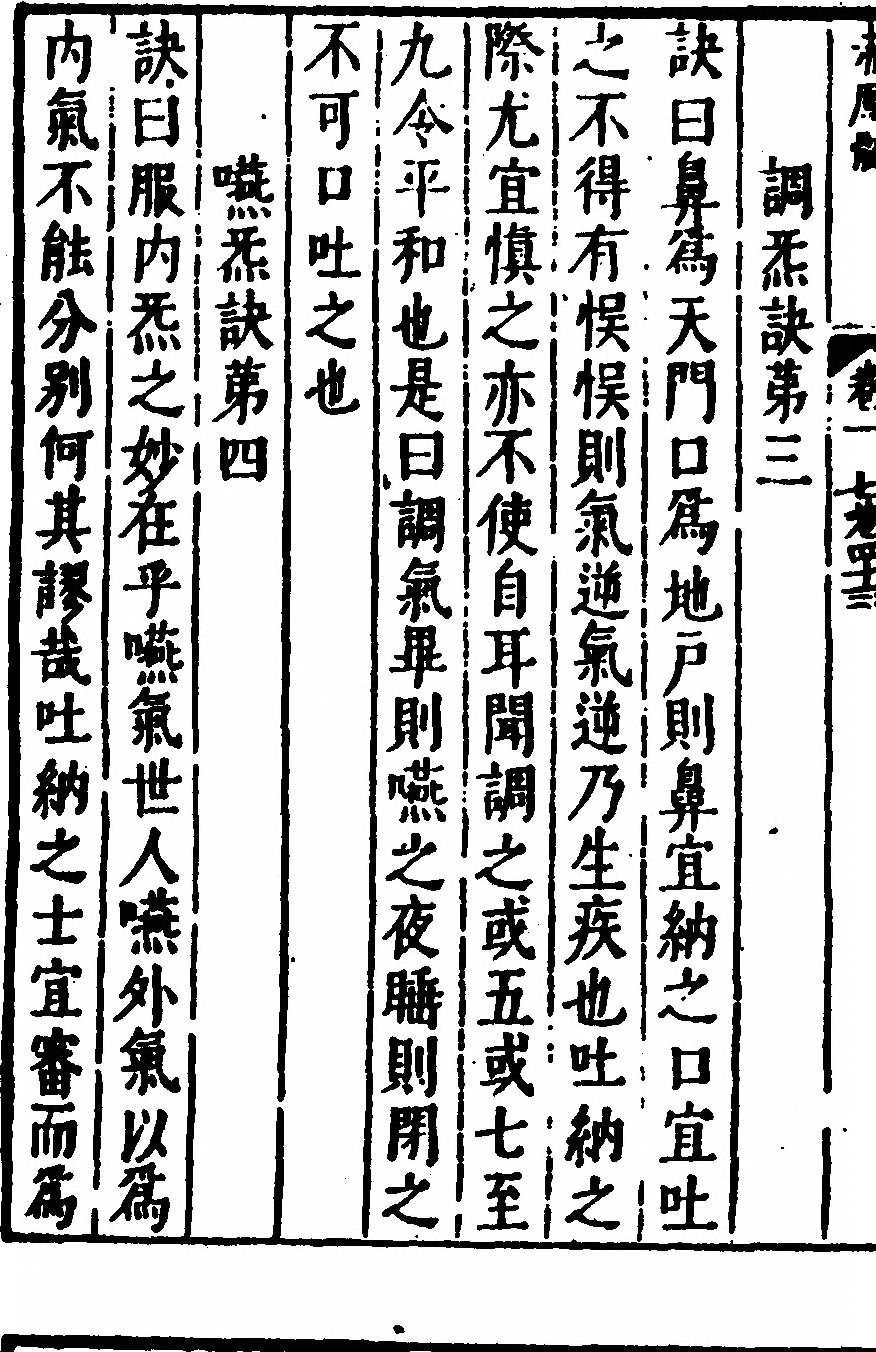 卷一
調炁訣第三
訣曰鼻爲天門口爲地戸則鼻宜納之口宜吐
之不得有悮悮則氣逆氣逆乃生疾也吐納之
際尤宜慎之亦不使自耳聞調之或五或七至
九令平和也是曰調氣畢則嚥之夜睡則閉之
不可口吐之也
嚥炁訣第四
訣曰服内炁之妙在乎嚥氣世人嚥外氣以爲
内氣不能分别何其謬哉吐納之士宜審而爲